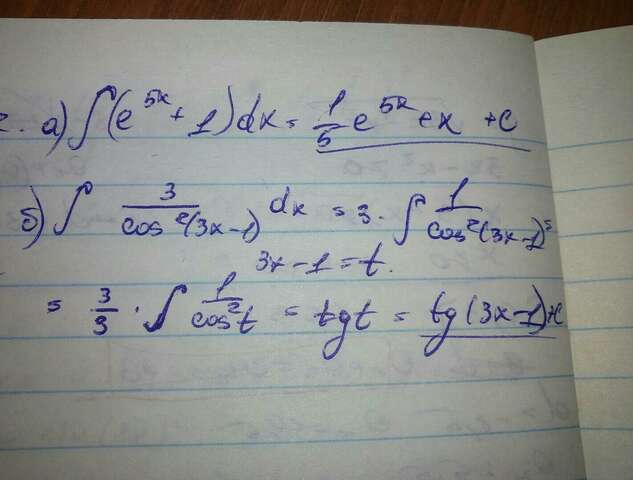 а) ∫(e^{5x} + 1)dx = 1/5 e^{5x} + x + c
б) ∫ 3/cos²(3x-1) dx = 3 · ∫ 1/cos²(3x-1) =
3x - 1 = t.
= 3/3 · ∫ 1/cos²t = tgt = tg(3x-1)+c